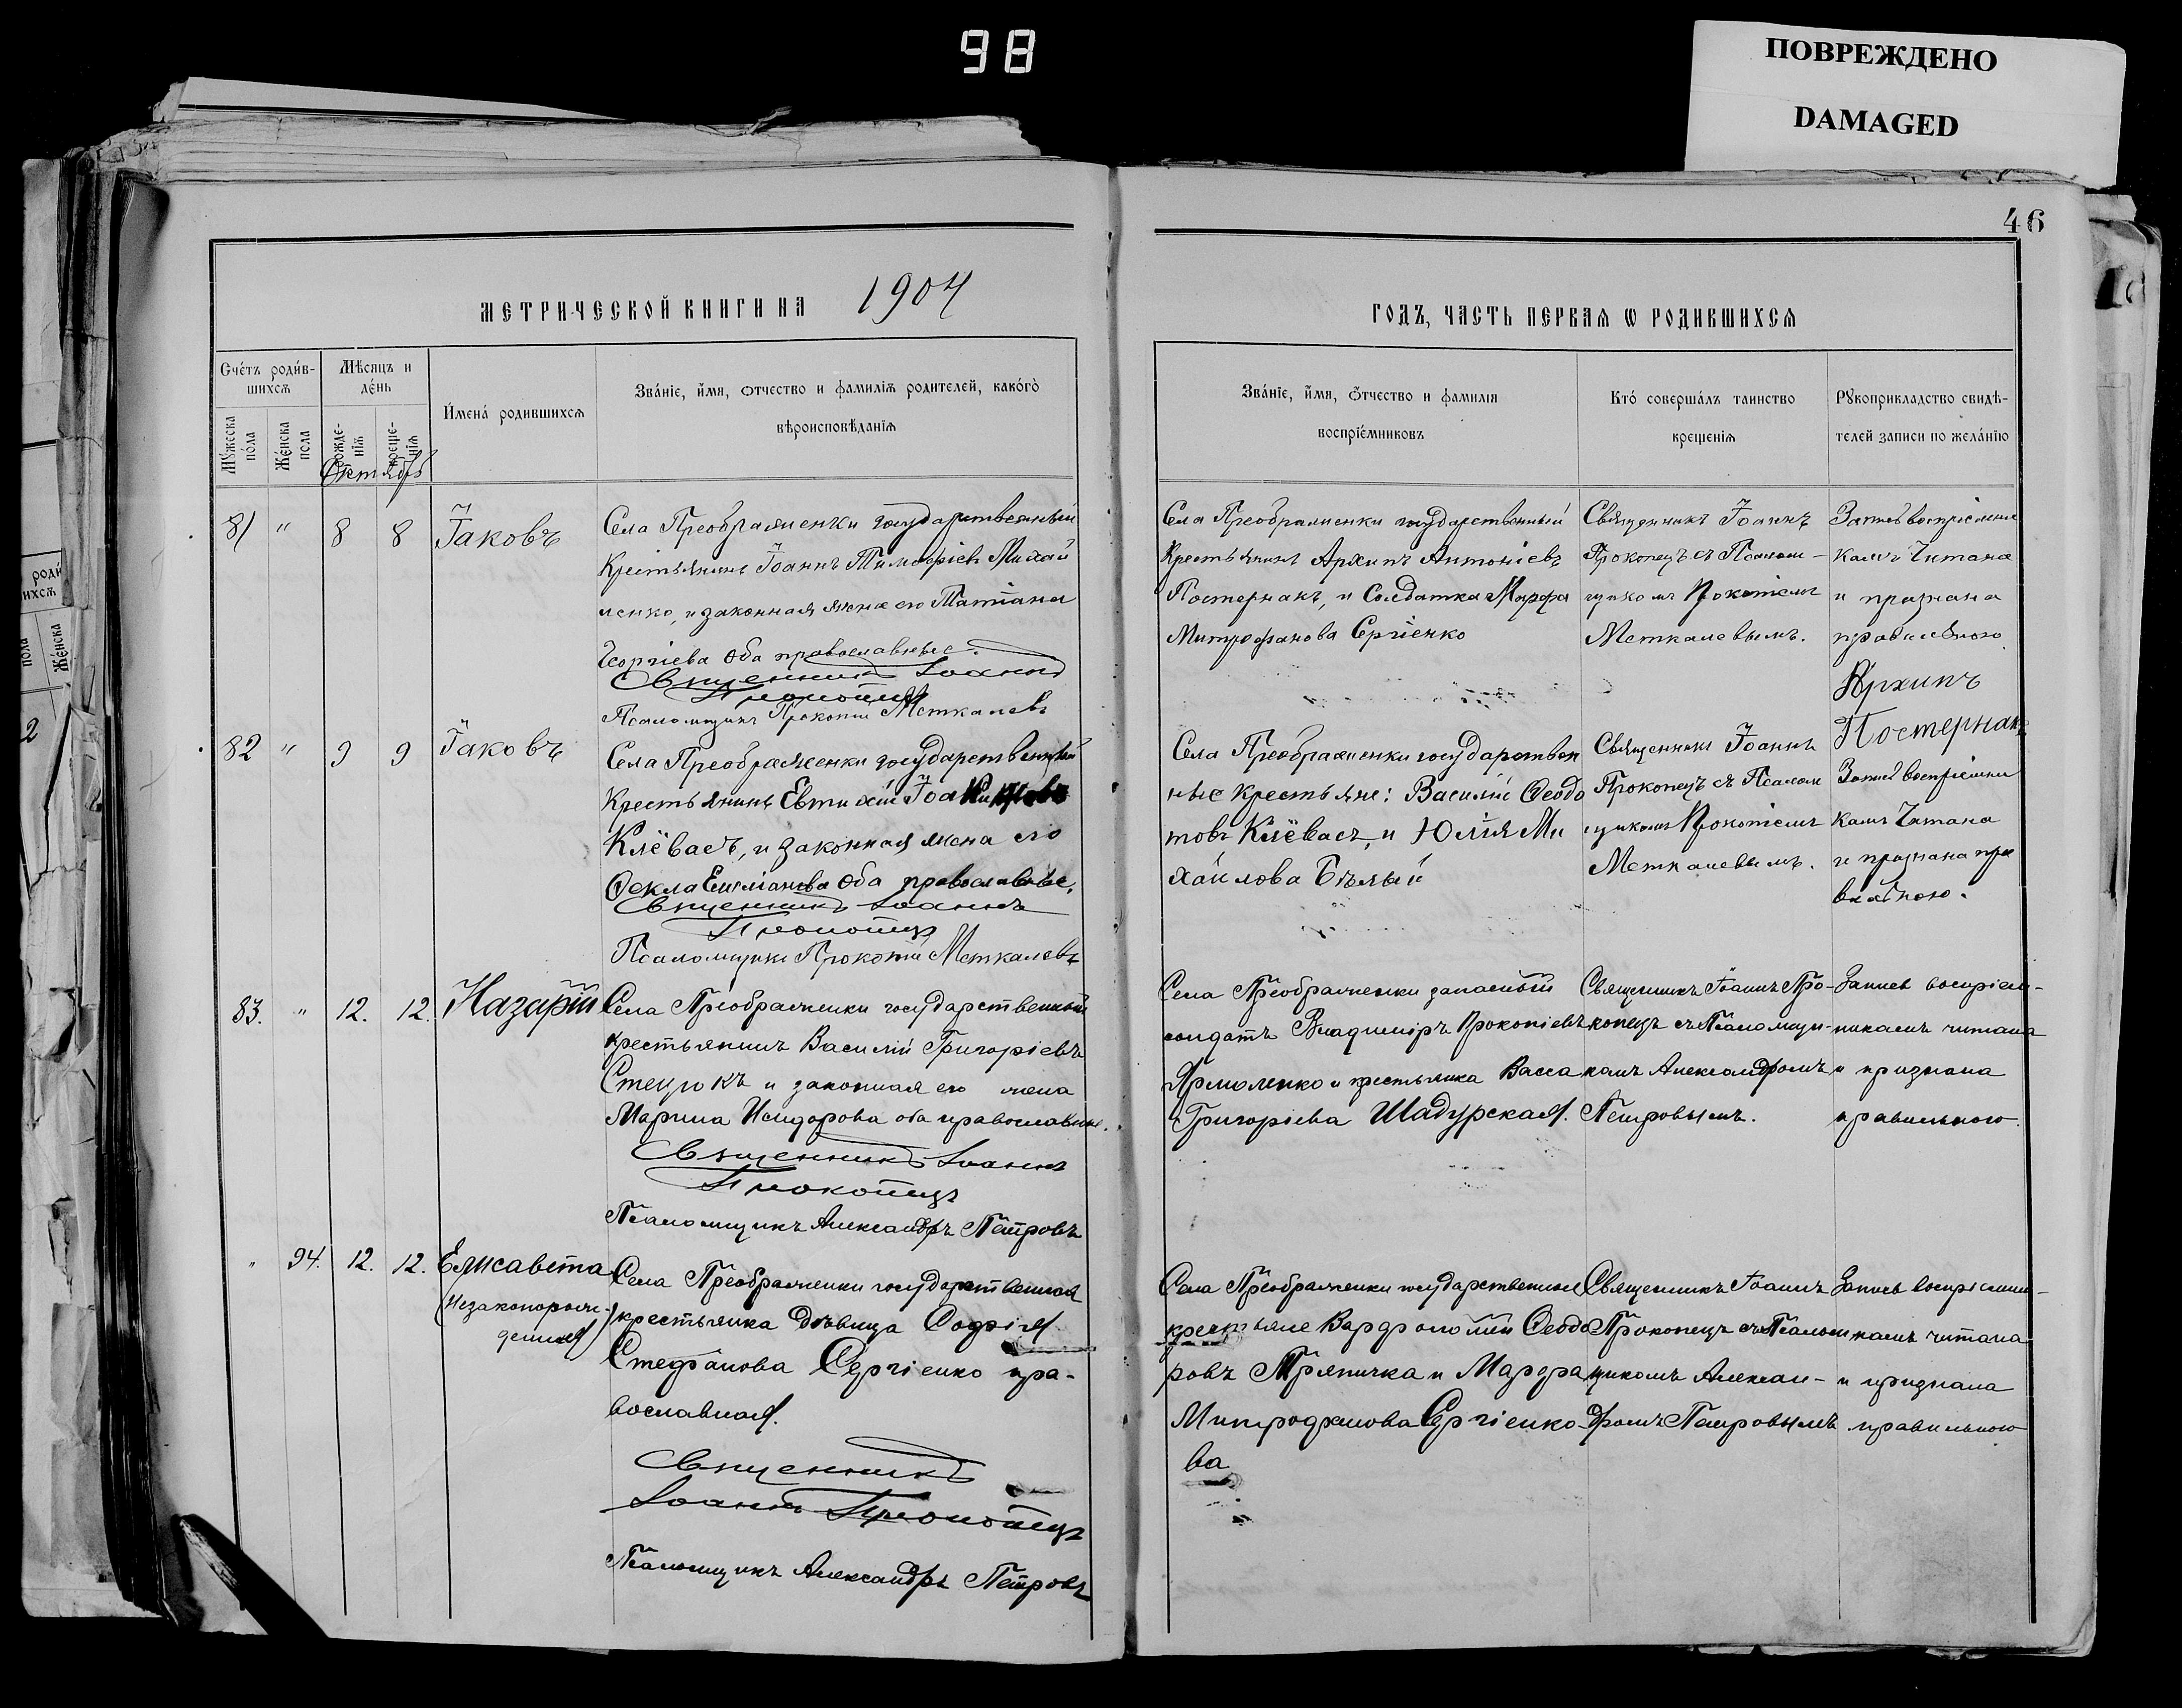 98
ПОВРЕЖДЕНО
DAMAGED
46
МЕТРИЧЕСКОЙ КНИГИ НА 1904
ГОДЪ, ЧАСТЬ ПЕРВАЯ Ѡ РОДИВШИХСЯ
Счетъ родив-
шихся
Мѣсяцъ и
день
Мужеска
пола
Женска
пола
рожде-
нія
креще-
нія
Имена родившихся
Званіе, имя, отчество и фамилія родителей, какого
вѣроисповѣданія
Званіе, имя, отчество и фамилія
воспріемниковъ
Кто совершалъ таинство
крещенія
Рукоприкладство свидѣ-
телей записи по желанію
Октябрь
81 " 8 8 Іаковъ
Села Преображенки государственный
Крестьянинъ Іоаннъ Тимофѣевъ Михай
ленко, и законная жена его Татіана
Георгіева оба православные.
Священникъ Іоаннъ
Прокопецъ
Псаломщикъ Прокопій Меткалевъ
Села Преображенки государственный
Крестьянинъ Архипъ Антоніевъ
Постернакъ, и Солдатка Марфа
Митрофанова Сергіенко
Священникъ Іоаннъ
Прокопецъ съ Псалом-
щикомъ Прокопіемъ
Меткалевымъ.
Запись воспріемни
камъ читана
и признана
правильною
Архипъ
Постернакъ
82 " 9 9 Іаковъ
Села Преображенки государственный
Крестьянинъ Евтихій
Клёвасъ, и законная жена его
Фекла Емиліанова оба православные.
Священникъ Іоаннъ
Прокопецъ
Псаломщикъ Прокопій Меткалевъ
Села Преображенки государствен
ные крестьяне: Василій Феодо
товъ Клёвасъ, и Юлія Ми
хайлова Бѣлый
Священникъ Іоаннъ
Прокопецъ съ Псалом
щикомъ Прокопіемъ
Меткалевымъ.
Запись воспріемни
камъ читана
и признана пра
вильною.
83. " 12. 12. Назарій
Села Преображенки государственный
крестьянинъ Василій Григоріевъ
Стецюкъ и законная его жена
Марина Исидорова оба православные.
Священникъ Іоаннъ
Прокопецъ
Псаломщикъ Александръ Петровъ
Села Преображенки запасный
солдатъ Владиміръ Прокопіевъ
Ярмоленко и крестьянка Васса
Григоріева Шадурская.
Священникъ Іоаннъ Про-
копецъ съ Псаломщи-
комъ Александромъ
Петровымъ.
Запись воспріем-
никамъ читана
и признана
правильною.
" 94. 12. 12. Елисавета
(Незаконорож-
денная)
Села Преображенки государственная
крестьянка дѣвица Софія
Стефанова Сергіенко пра-
вославная.
Священникъ
Іоаннъ Прокопецъ
Псаломщикъ Александръ Петровъ
Села Преображенки государственные
крестьяне Варфоломей Феодо
ровъ Тряпичка и Марфа
Митрофанова Сергіенко
ва
Священникъ Іоаннъ
Прокопецъ съ Псалом
щикомъ Алексан-
дромъ Петровымъ
Запись воспріемни-
камъ читана
и признана
правильною